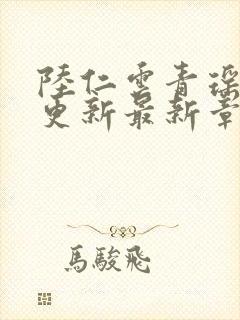 陸仁雲青瑶
更新最新章
馬駿飛